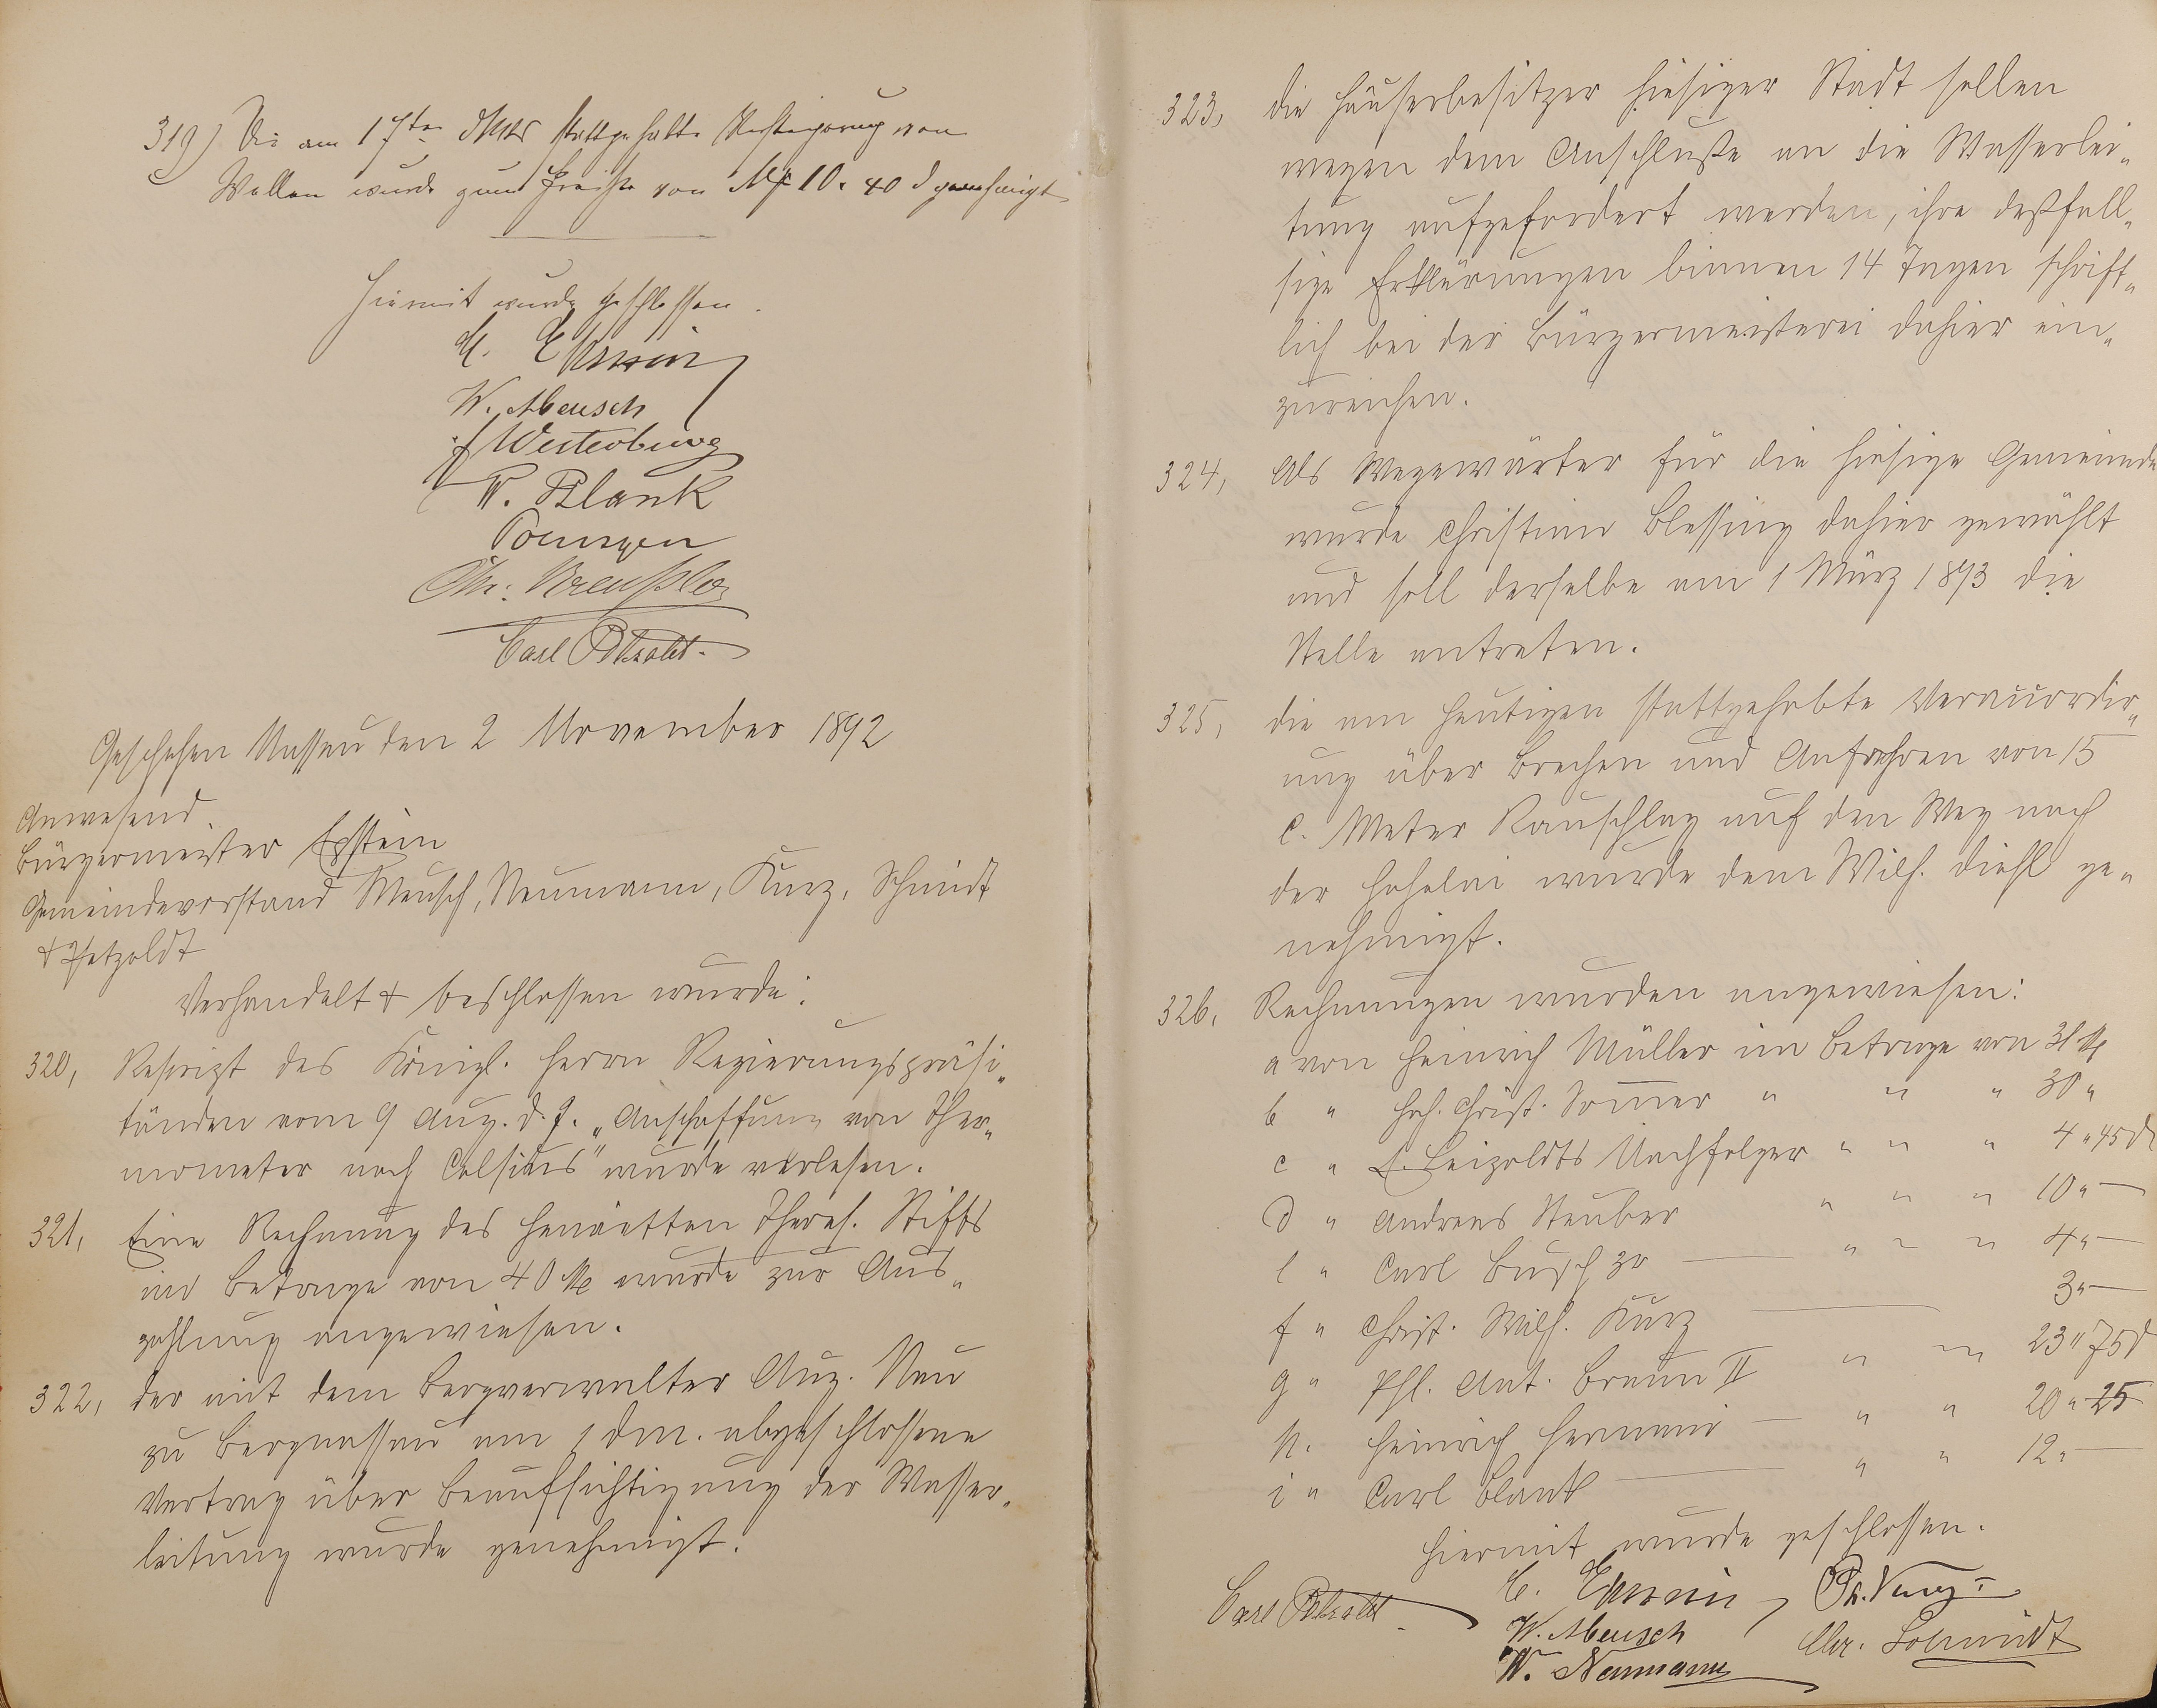 319) Die am 17ten Oktbr stattgehabte Versteigerung von
Wellen wurde zum Preise von M 10. 40 d genehmigt
Hiermit wurde geschlossen.
W. Meusch
F Westerburg
W. Blank
Chr. Kreußler
Carl Petzoldt.
Geschehen Nassau den 2 November 1892
Anwesend.
Bürgermeister Epstein
Gemeindevorstand Meusch, Neumann, Kurz, Schmidt
& Petzoldt
Verhandelt & beschlossen wurde:
320, Reskript des Königl. Herrn Regierungspräsi„
tänden vom 9 Aug. d. J. „Anschaffung von Ther„
mometer nach Celsius" wurde verlesen.
321, Eine Rechnung des Henrietten Theres. Stifts
im Betrage von 40 M wurde zur Aus„
zahlung angewiesen.
322, der mit dem Bergverwalter Aug. Neu
zu Bergnassau am 1 dM. abgeschlossene
Vertrag über Beaufsichtigung der Wasser„
leitung wurde genehmigt.
323, die Häuserbesitzer hiesiger Stadt sollen
wegen dem Anschluße an die Wasserlei„
tung aufgefordert werden, ihre deßfall„
sige Erklärungen binnen 14 Tagen schrift„
lich bei der Bürgermeisterei dahier ein„
zureichen.
324, Als Wegewärter für die hiesige Gemeinde
wurde Christian Blessing dahier gewählt
und soll derselbe am 1 März 1893 die
Stelle antreten.
325, die am heutigen stattgehabte Veraccordir„
ung über Brechen und Anfahren von 15
C. Meter Rauschlag auf den Weg nach
der Hohelai wurde dem Wilh. Diehl ge„
nehmigt.
326, Rechnungen wurden angewiesen:
a von Heinrich Müller im Betrage von 31 M
b " Hch. Christ. Sommer " " " 30 "
c " E. Leizoldts Nachfolger " " " 4 " 45 d
d " Andreas Steuber " " " 10 " —
e " Carl Busch zr — " " " 4 " —
f " Christ. Wilh. Kurz — 3 " —
g " Phl. Ant. Braun II " " 23 " 75 d
h. Heinrich Hermann — " " 20 " 25
i " Carl Blank — " " 12 " —
Hiermit wurde geschlossen.
Carl Petzoldt
Ph. Kurz
W. Meusch
Chr. Schmidt
W. Neumann